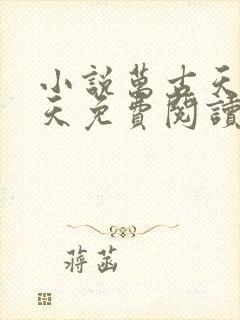 小說萬古天
天免費閱讀
蔣菡